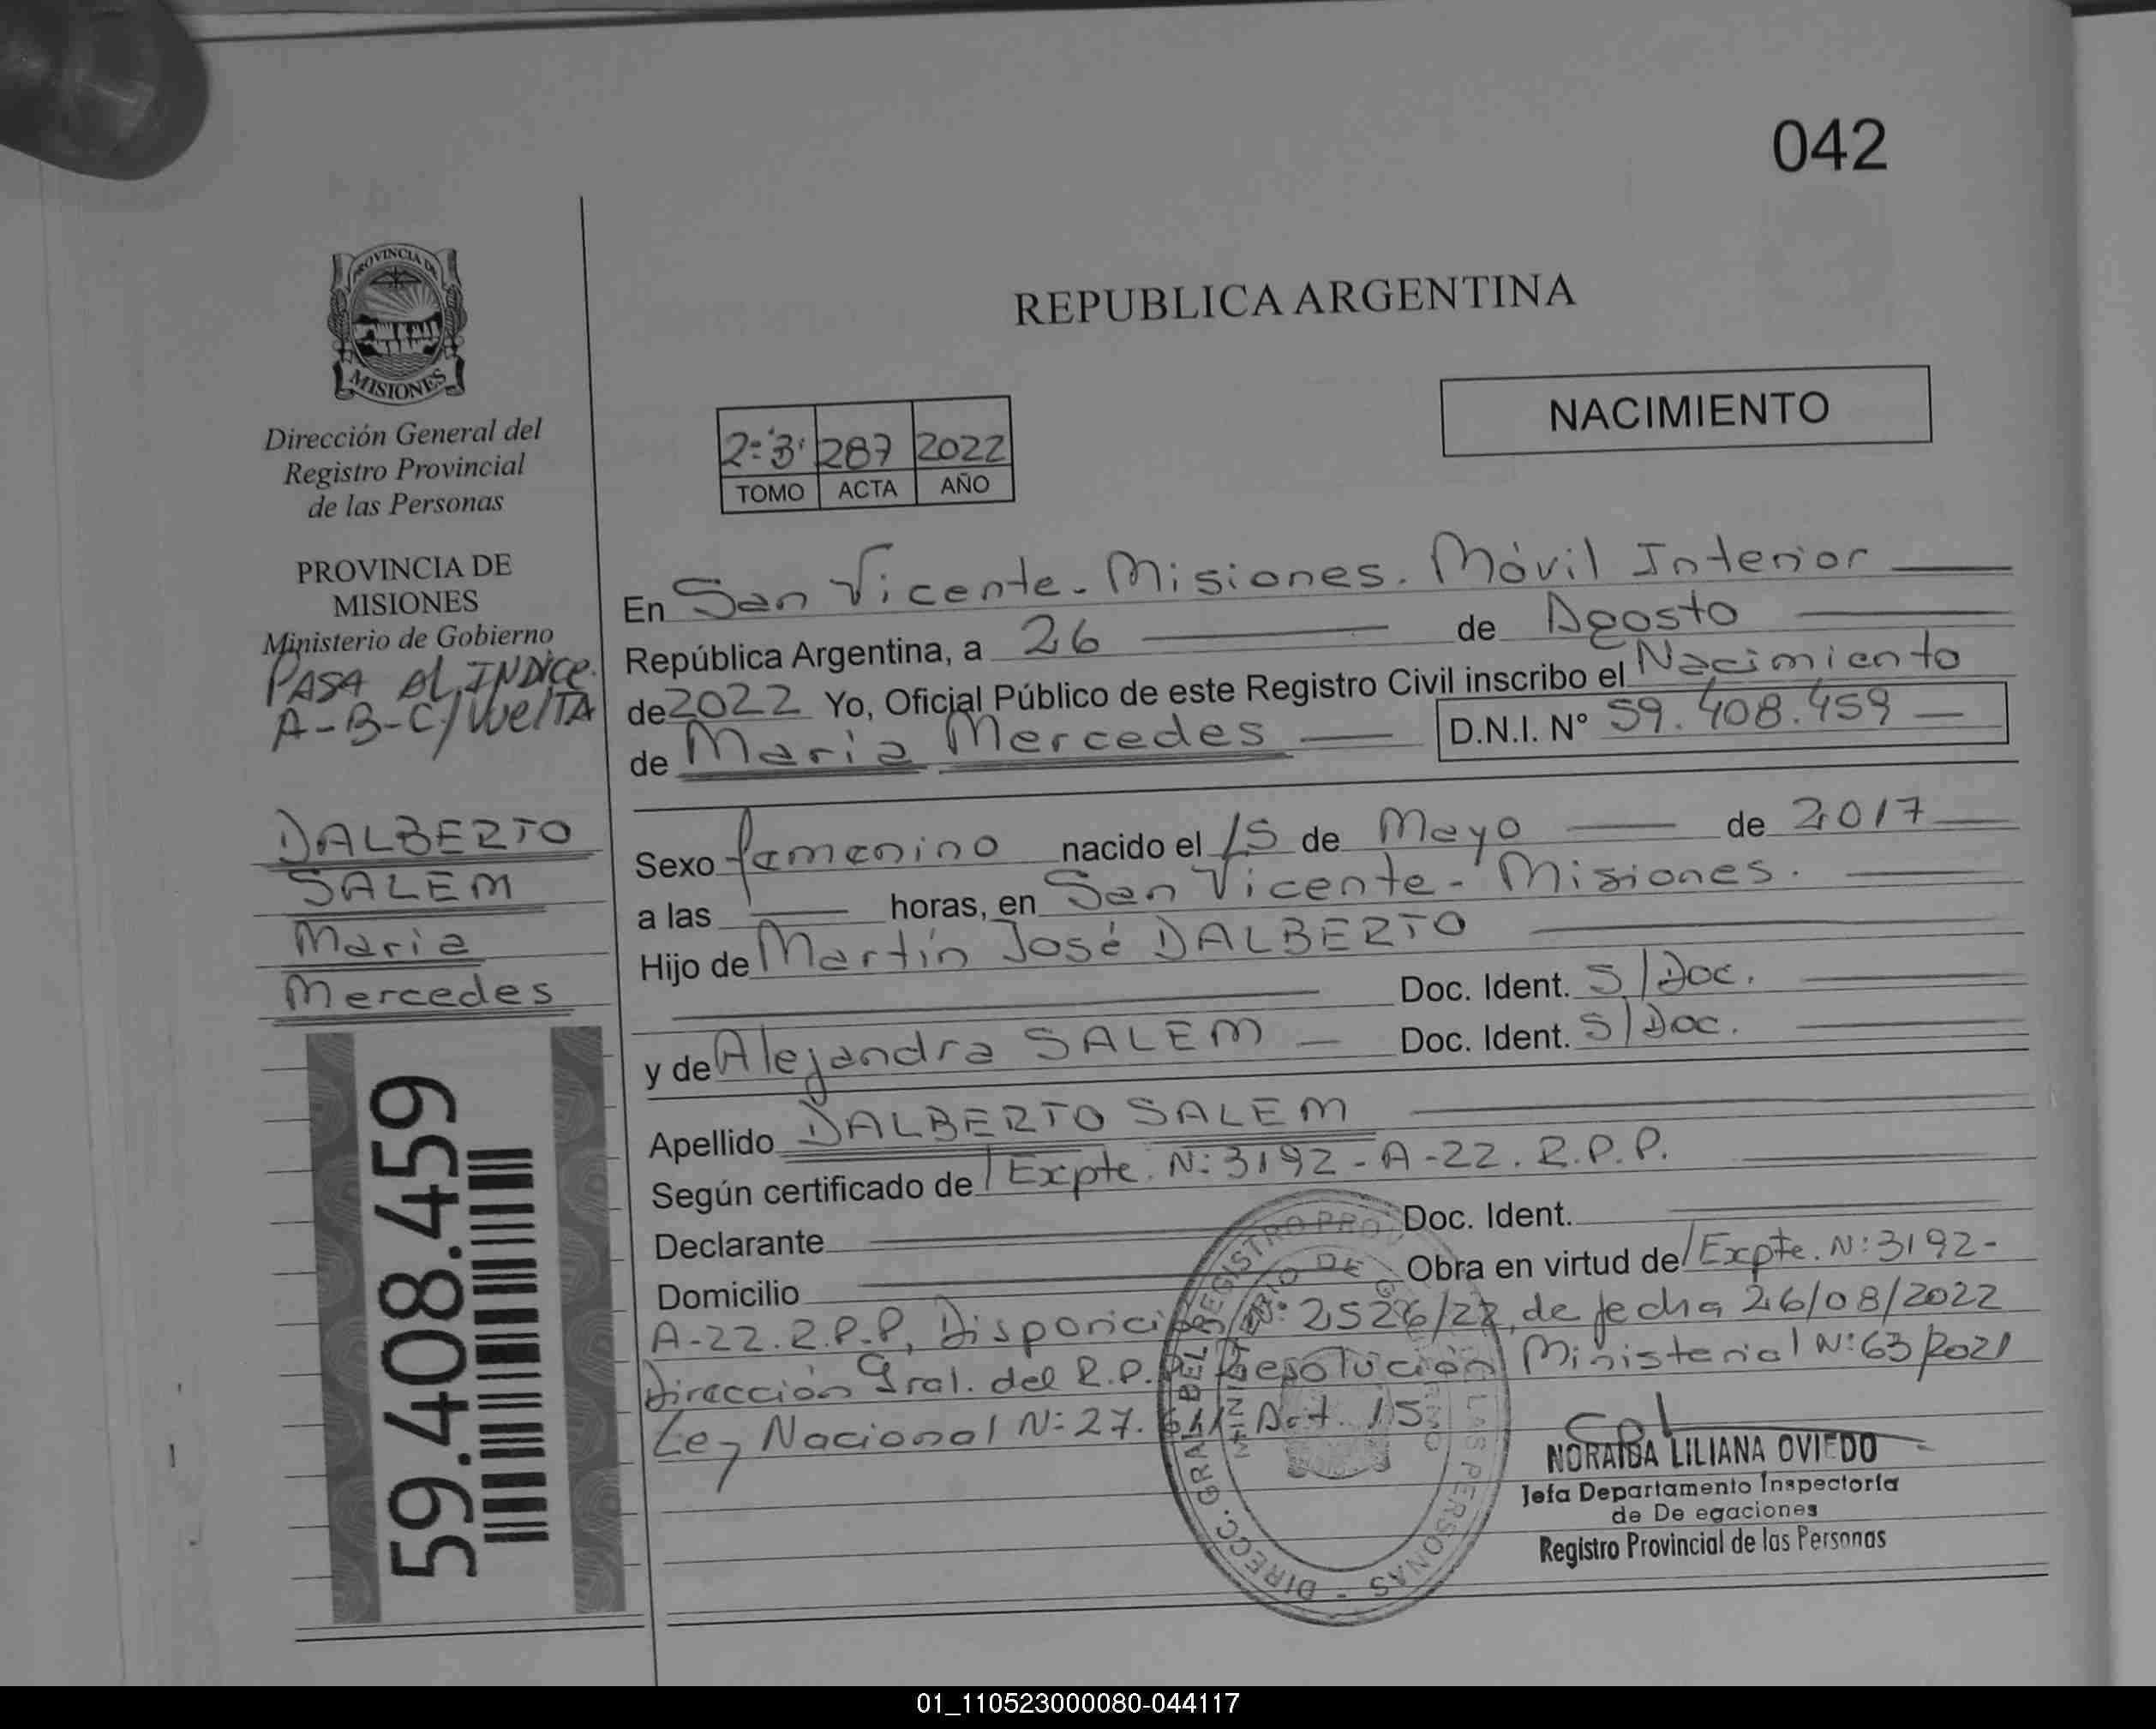 042
PROVINCIA DE
MISIONES
Dirección General del
Registro Provincial
de las Personas
PROVINCIA DE
MISIONES
Ministerio de Gobierno
PASA AL INDICE.
A-B-C/VUELTA
DALBERTO
SALEM
Maria
Mercedes
59.408.459
REPUBLICA ARGENTINA
NACIMIENTO
2=ª3ª 287 2022
TOMO ACTA AÑO
En San Vicente - Misiones. Móvil Interior
República Argentina, a 26 de Agosto
de 2022 Yo, Oficial Público de este Registro Civil inscribo el Nacimiento
de Maria Mercedes D.N.I. Nº 59.408.459
Sexo femenino nacido el 15 de Mayo de 2017
a las horas, en San Vicente - Misiones.
Hijo de Martín José DALBERTO
Doc. Ident. S/Doc.
y de Alejandra SALEM Doc. Ident. S/Doc.
Apellido DALBERTO SALEM
Según certificado de Expte. N: 3192 - A - 22. R.P.P.
Declarante Doc. Ident.
Domicilio Obra en virtud de Expte. N: 3192 -
A-22. R.P.P, Disposición N: 2526/22, de fecha 26/08/2022
Dirección Gral. del R.P.P. Resolución Ministerial N: 63/2021
Ley Nacional N: 27.611 Art. 15
DIRECC. GRAL DEL REGISTRO PROV DE LAS PERSONAS -
MINISTERIO DE GOBIERNO
NORAIBA LILIANA OVIEDO
Jefa Departamento Inspectoría
de De egaciones
Registro Provincial de las Personas
01_110523000080-044117